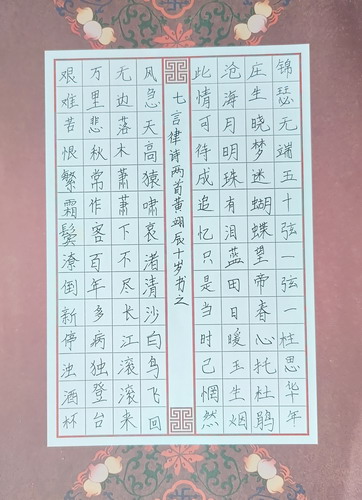 锦瑟无端五十弦一弦一柱思华年
庄生晓梦迷蝴蝶望帝春心托杜鹃
沧海月明珠有泪蓝田日暖玉生烟
此情可待成追忆只是当时已惘然
七言律诗两首黄翊辰十岁书之
风急天高猿啸哀渚清沙白鸟飞回
无边落木萧萧下不尽长江滚滚来
万里悲秋常作客百年多病独登台
艰难苦恨繁霜鬓潦倒新停浊酒杯